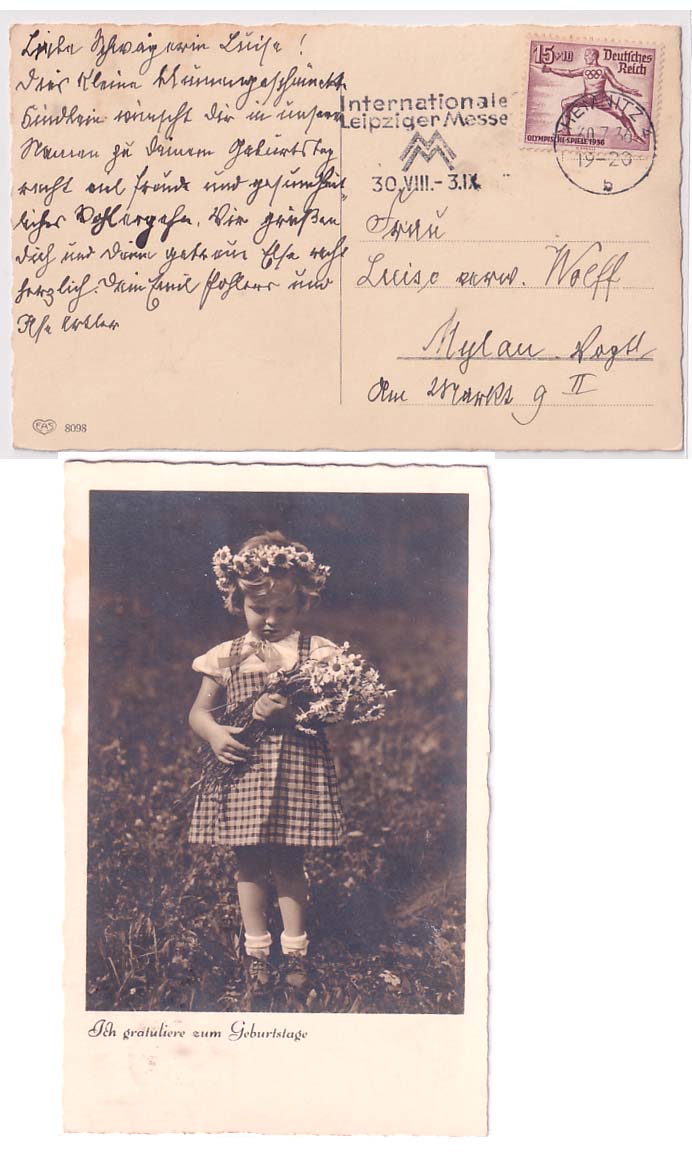 Liebe Schwägerin Luise!
Dies kleine blumengeschmückte
Kindlein wünscht Dir in unserem
Namen zu deinem Geburtstag
recht viel Freude und gesundheit-
liches Wohlergehn. Wir grüßen
dich und Deine getreue Else recht
herzlich. Dein Emil Pohlers und
FAS 8098
Internationale
Leipziger Messe
MM
30.VIII.- 3.IX.
15+10 Deutsches
Reich
OLYMPISCHE SPIELE 1936
CHEMNITZ
30.7.36
19-20
b
Frau
Luise verw. Wolff
Mylau. Vogtl.
Am Markt 9 II
Ich gratuliere zum Geburtstage